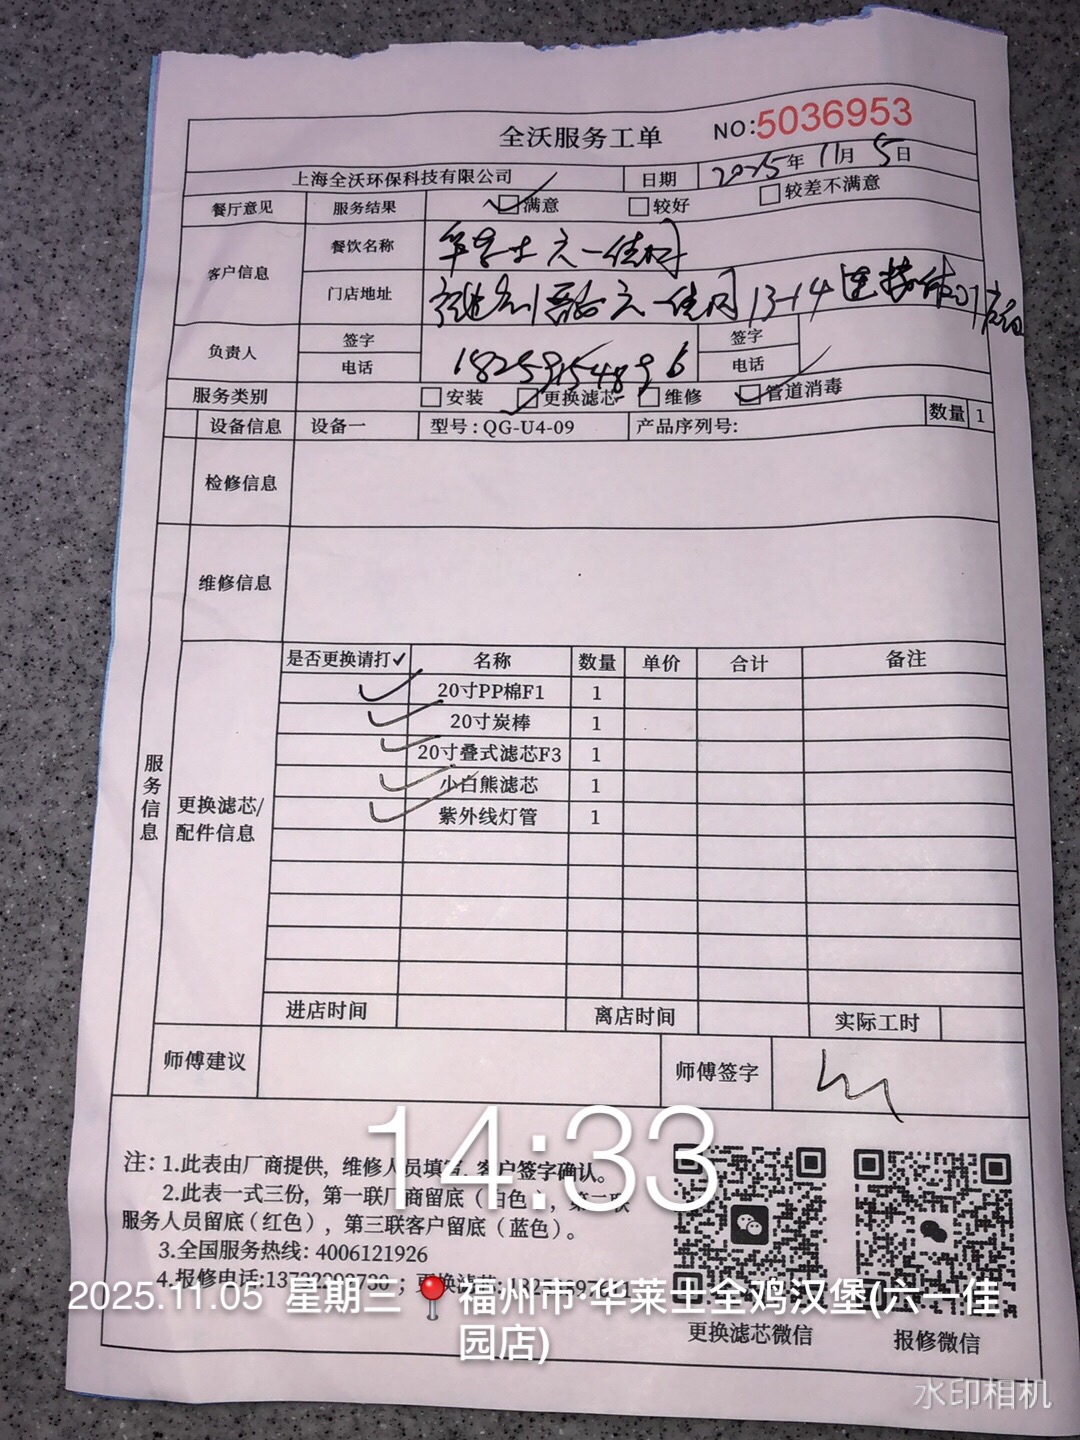 全沃服务工单
NO:5036953
上海全沃环保科技有限公司 日期 2025年11月5日
餐厅意见 服务结果 ☑满意 □较好 □较差不满意
客户信息 餐饮名称 华莱士六一佳园
门店地址 六一佳园13-14连接体01店
负责人 签字 签字
电话 18259154896 电话
服务类别 □安装 ☑更换滤芯 □维修 ☑管道消毒
设备信息 设备一 型号:QG-U4-09 产品序列号: 数量 1
检修信息
维修信息
服务信息
更换滤芯/配件信息
是否更换请打✓ 名称 数量 单价 合计 备注
✓ 20寸PP棉F1 1
✓ 20寸炭棒 1
✓ 20寸叠式滤芯F3 1
✓ 小白熊滤芯 1
✓ 紫外线灯管 1
进店时间 离店时间 实际工时
师傅建议 师傅签字
14:33
注:1.此表由厂商提供,维修人员填写,客户签字确认。
2.此表一式三份,第一联厂商留底(白色),第二联
服务人员留底(红色),第三联客户留底(蓝色)。
3.全国服务热线:4006121926
4.报修电话: ;更换滤芯:
更换滤芯微信 报修微信
2025.11.05 星期三 福州市·华莱士全鸡汉堡(六一佳
园店)
水印相机